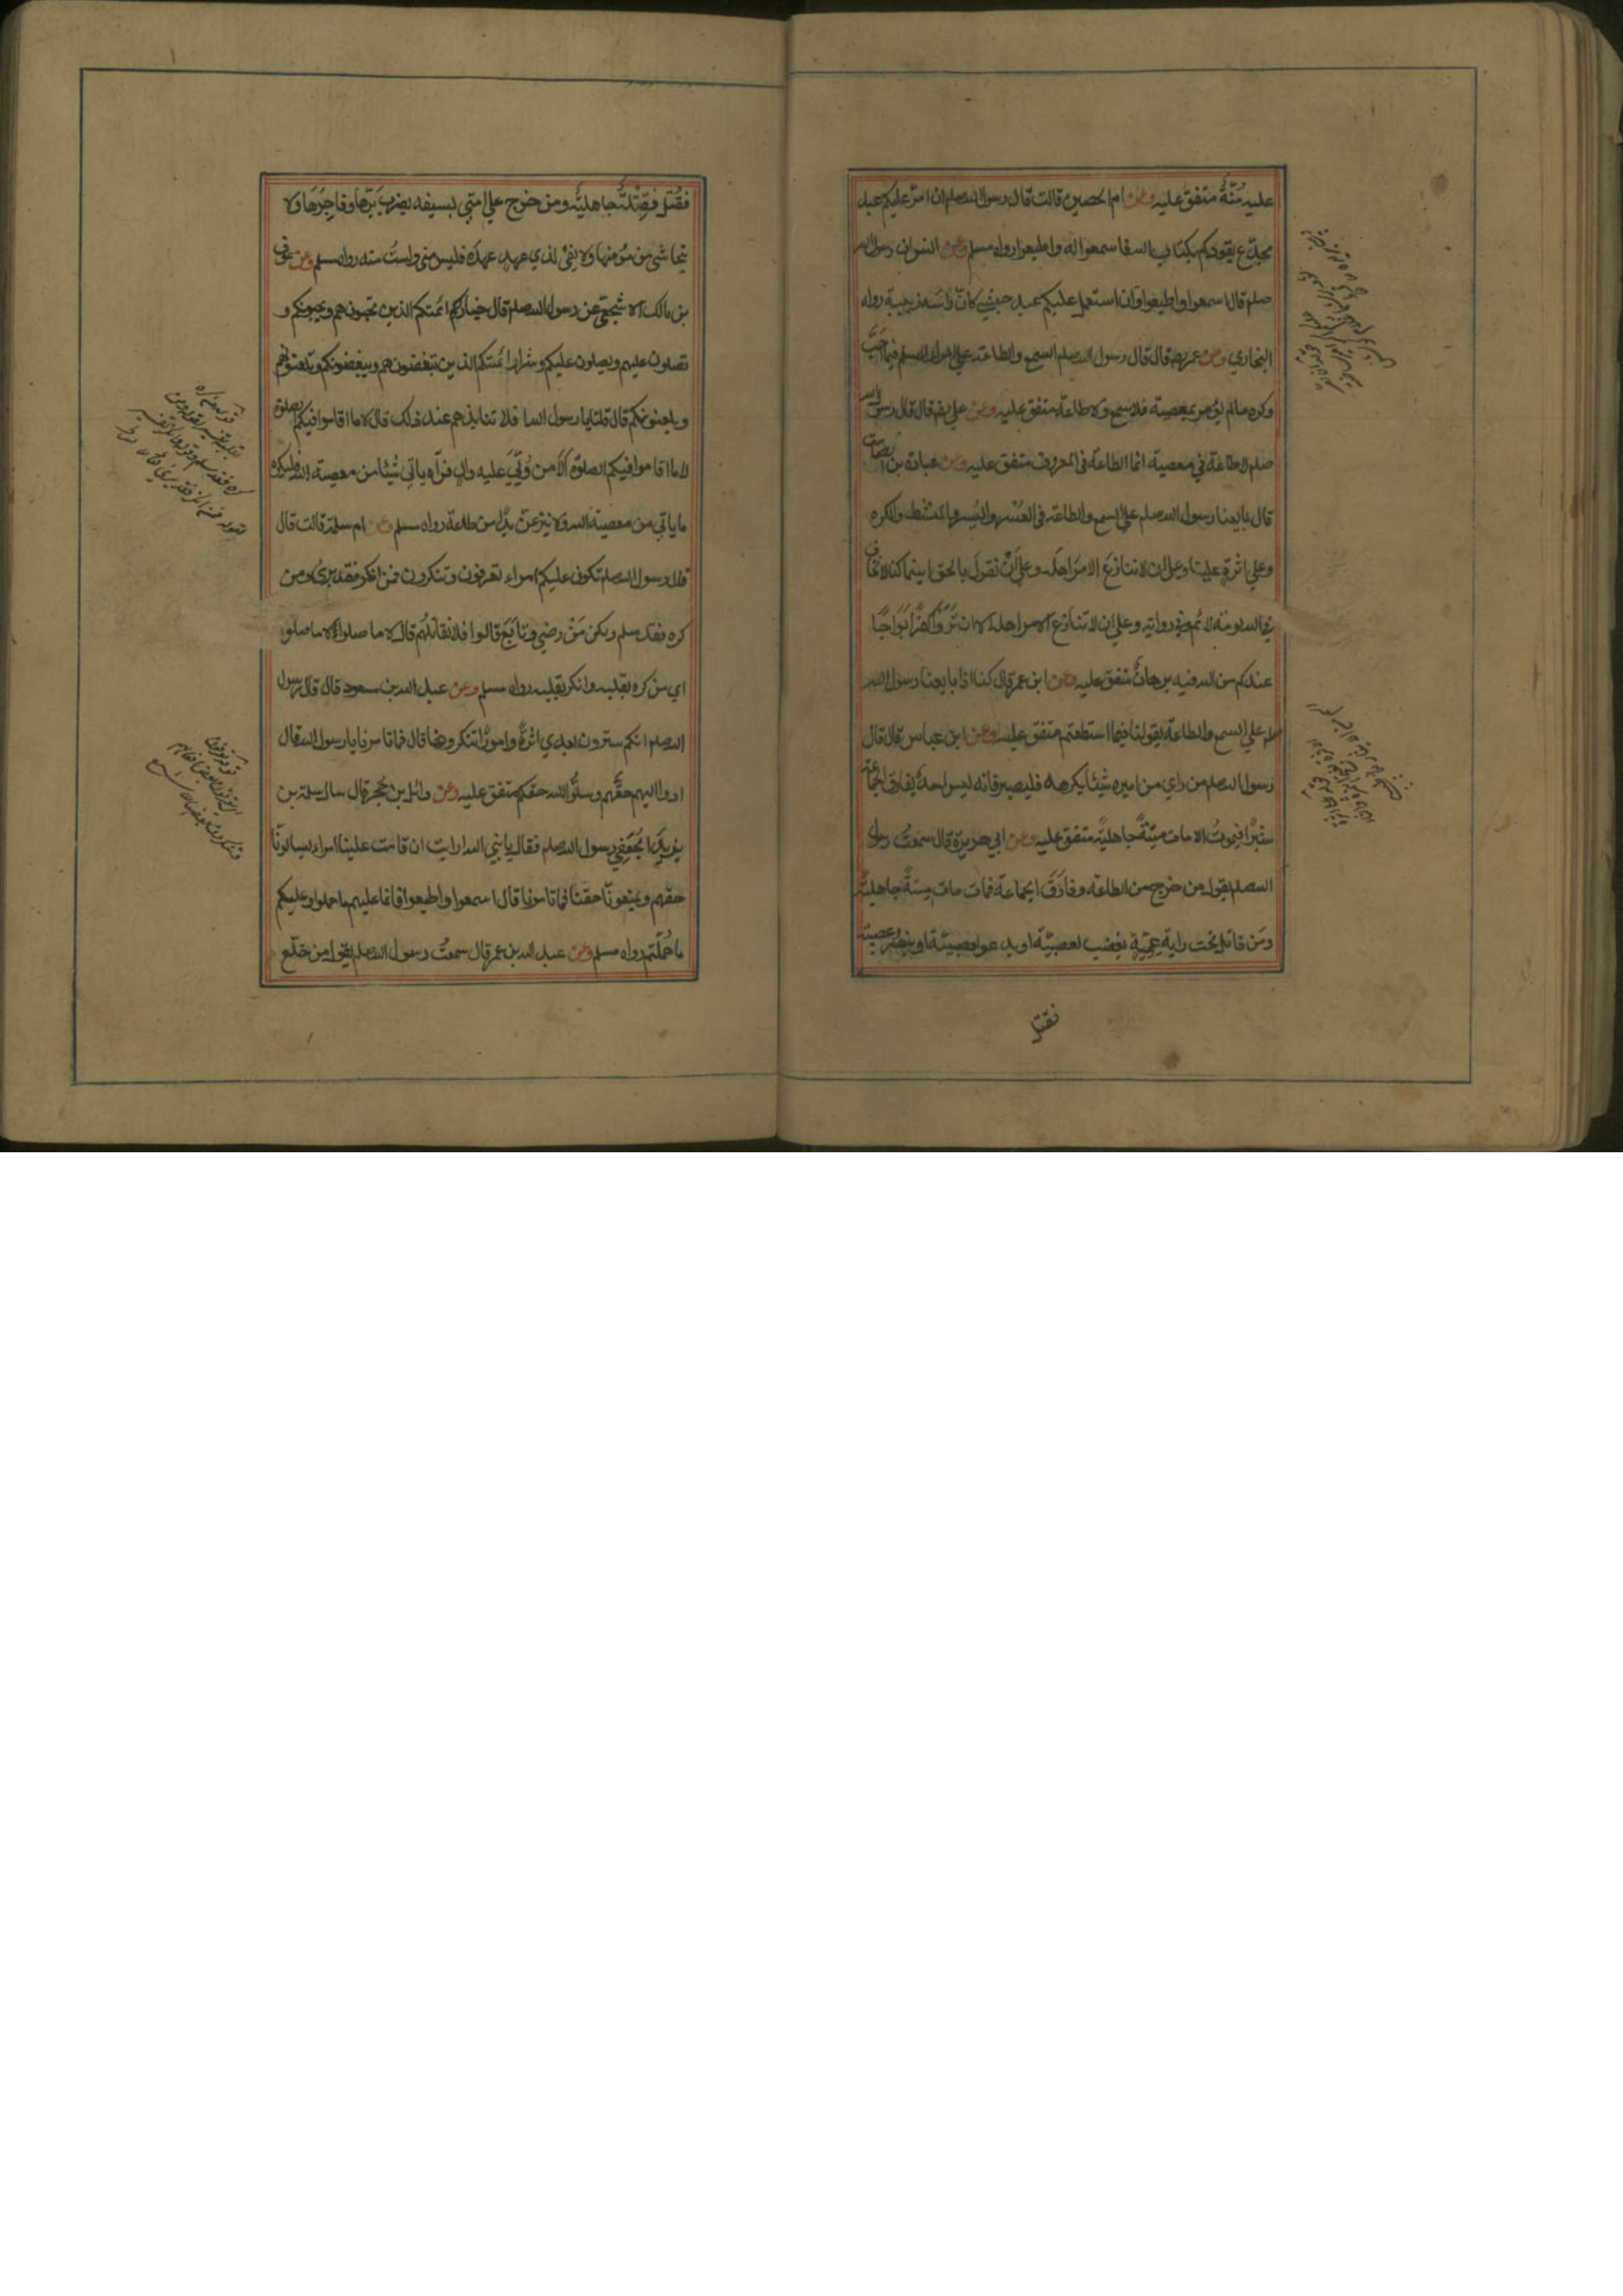 عليه مُنّةً متفق عليه وعن ام الحصين قالت قال رسول الله صلم ان امّر عليكم عبد
مجدّع يقودكم بكتاب الله فاسمعوا له واطيعوا رواه مسلم وعن انس ان رسول الله
صلم قال اسمعوا واطيعوا وان استعمل عليكم عبد حبشي كانّ راسه زبيبة رواه
البخاري وعن عمر رضم قال قال رسول الله صلم السمع والطاعة على المرا المسلم فيما احَبَّ
وكره مالم يؤمر بمعصية فلا سمع ولا طاعة متفق عليه وعن علي رضم قال قال رسول الله
صلم لا طاعة في معصية انما الطاعة في المعروف متفق عليه وعن عبادة بن الصامت
قال بايعنا رسول الله صلم على السمع والطاعة في العُسْر واليُسر والمنشط والمكره
وعلي اثرة علينا وعلى ان لا ننازع الامرَ اهلَه وعلي اَنْ نقولَ بالحق اينما كنا لا نخاف
في الله لومة لائم وفي رواية وعلي ان لا ننازع الامر اهله الا ان تَرَوْا كُفرًا بَوَاحًا
عندكم من الله فيه برهانٌ متفق عليه وعن ابن عمر قال كنا اذا بايعنا رسول الله
صلم علي السمع والطاعة يقول لنا فيما استطعتم متفق عليه وعن ابن عباس قال قال
رسول الله صلم من راي من اميره شيئا يكرهه فليصبر فانه ليس احدٌ يفارق الجماعة
شبرًا فيموتُ الا مات ميتةً جاهليةً متفق عليه وعن ابي هريرة قال سمعتُ رسول
الله صلم يقول من خرج من الطاعة وفارَقَ الجماعة فمات مات ميتةً جاهليةً
ومَن قاتل تحت راية عِمِّيّة يغضب لعصبيّة او يدعوا لعصبيّة او ينصُر عصبيّة
فقتل
فقُتل فقِتْلةٌ جاهليةٌ ومن خرج علي امتي بسيفه يضرب بَرّها وفاجِرَها ولا
يتحاشى من مُؤمنها ولا يفي لذي عهدٍ عهدَه فليس مني ولستُ منه رواه مسلم وعن عوف
بن مالك الاشجعي عن رسول الله صلم قال خيارُكم ائمتكم الذين تحبونهم ويحبونكم و
تصلون عليهم ويصلون عليكم وشرار ائمتكم الذين تبغضونهم ويبغضونكم وتلعنونهم
ويلعنونكم قال قلنا يا رسول الله افلا ننابذهم عند ذلك قال لا ما اقاموا فيكم الصلوة
لا ما اقاموا فيكم الصلوة اَلَا من وُلّيَ عليه والٍ فرآه ياتي شيئا من معصية الله فليكره
ما ياتي من معصية الله ولا ينزعنّ يدًا من طاعة رواه مسلم وعن ام سلمة قالت قال
قال رسول الله صلم تكون عليكم امراء تعرفون وتنكرون فمن انكر فقد بَرئ ومن
كره فقد سلم ولكن مَنْ رضي وتابَعَ قالوا افلا نقاتلُهم قال لا ما صلوا لا ما صلوا
اي من كره بقلبه وانكر بقلبه رواه مسلم وعن عبد الله بن مسعود قال قال لنا رسول
الله صلم انكم سترون بعدي اثرةً وامورًا تنكرونها قال فما تامرنا يا رسول الله قال
ادوا اليهم حقَّهم وسلُوا الله حقكم متفق عليه وعن وائل بن حُجر قال سال سلمة بن
يزيد الجُعْفِي رسول الله صلم فقال يا نبي الله ارايت ان قامت علينا امراء يسالوناّ
حقهم ويمنعونّا حقنا فما تامرنا قال اسمعوا واطيعوا فانما عليهم ما حملوا وعليكم
ما حُمّلتم رواه مسلم وعن عبد الله بن عمر قال سمعتُ رسول الله صلم يقول من خلَع